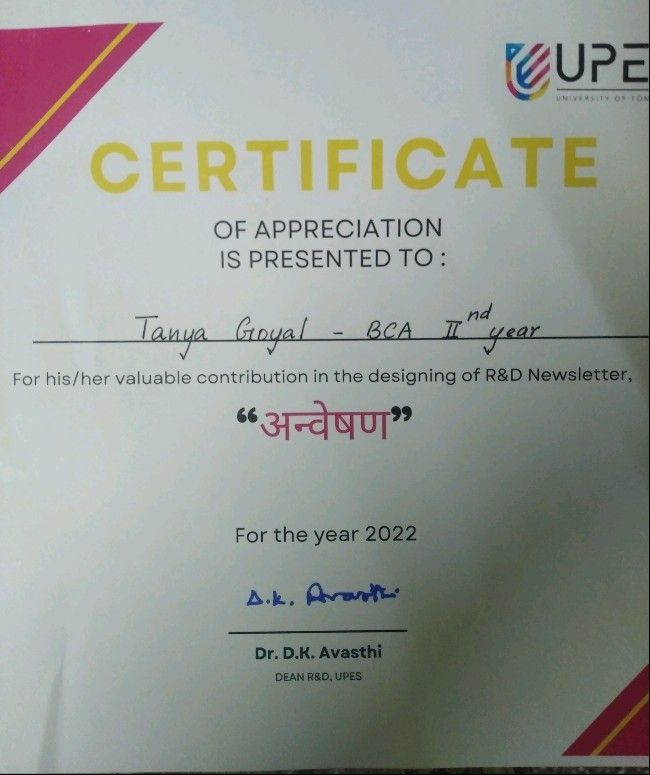 UPE
UNIVERSITY OF
CERTIFICATE
OF APPRECIATION
IS PRESENTED TO :
Tanya Goyal - BCA IInd year
For his/her valuable contribution in the designing of R&D Newsletter,
“अन्वेषण”
For the year 2022
D.K. Avasthi
Dr. D.K. Avasthi
DEAN R&D, UPES